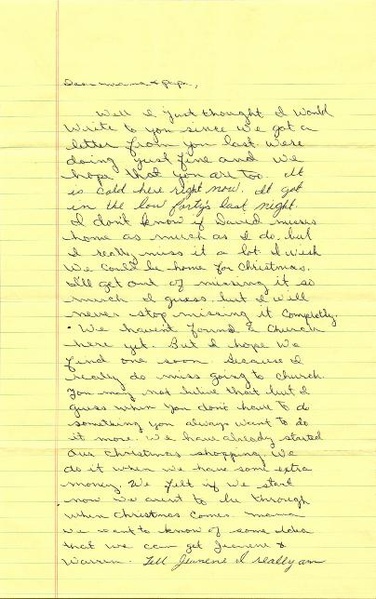 Dear mama & papa,
Well I just thought I would
write to you since we got a
letter from you last. Were
doing just fine and we
hope that you are too. It
is cold here right now. It got
in the low forty's last night.
I don't know if David misses
home as much as I do, but
I really miss it a lot. I wish
We could be home for Christmas.
I'll get out of missing it so
much I guess, but I will
never stop missing it completly.
We haven't found a Church
here yet. But I hope we
find one soon. Because I
really do miss going to church.
You may not belive that but I
guess when you don't have to do
something you always want to do
it more. We have already started
our Christmas shopping. We
do it when we have some extra
money. We felt if we start
now we
to be through
when Christmas comes. Mama
we want to know of some idea
that we can get Jeanene &
Warren. Tell Jeanene I really am